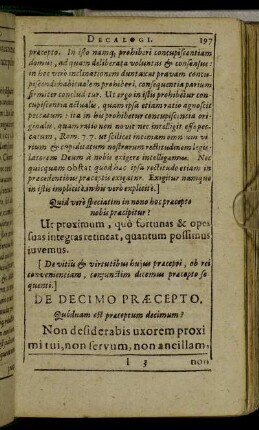 DECALOGI. 197
præcepto. In isto namq, prohiberi concupiscentiam
domus, ad quam deliberata voluntas & consensus:
in hoc verò inclinationem duntaxat pravam concu-
piscendi habitualem prohiberi, consequentia parùm
firmiter concluditur. Ut ergo in istis prohibetur con-
cupiscentia actualis, quam ipsa etiam ratio agnoscit
peccatum: ita in his prohibetur concupiscentia ori-
ginalis, quam ratio non novit nec intelligit esse pec-
catum, Rom. 7. 7. ut scilicet intimam omnium vi-
rium & cupiditatum nostrarum rectitudinem legis-
latorem Deum à nobis exigere intelligamus. Nec
quicquam obstat quòd hac ipsa rectitudo etiam in
præcedentibus præceptis exigatur. Exigitur namque
in istis implicitè, in his verò explicitè.]
Quid verò speciatim in nono hoc præcepto
nobis præcipitur?
Ut proximum, quò fortunas & opes
suas integras retineat, quantum possimus
juvemus.
[De vitiis & virtutibus hujus præcepti, ob rei
convenientiam, conjunctim dicemus præcepto se-
quenti.]
DE DECIMO PRÆCEPTO.
Quidnam est præceptum decimum?
Non desiderabis uxorem proxi
mi tui, non servum, non ancillam,
I 3 non